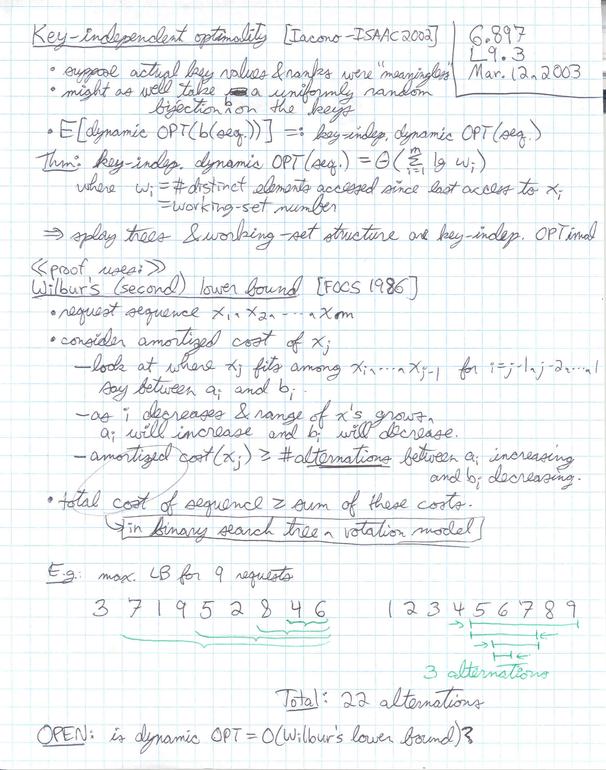 Key-independent optimality [Iacono-ISAAC2002]
6.897
L9.3
Mar. 12, 2003
• suppose actual key values & ranks were "meaningless"
• might as well take a uniformly random
bijection b on the keys
• E[dynamic OPT(b(seq.))] =: key-indep. dynamic OPT(seq.)
Thm: key-indep. dynamic OPT(seq.) = Θ(∑_{i=1}^{m} lg w_i)
where w_i = # distinct elements accessed since last access to x_i
= working-set number
⇒ splay trees & working-set structure are key-indep. OPTimal
<<proof uses:>>
Wilbur's (second) lower bound [FOCS 1986]
• request sequence x_1, x_2, ..., x_m
• consider amortized cost of x_j
– look at where x_j fits among x_i, ..., x_{j-1} for i=j-1, j-2, ..., 1
say between a_i and b_i.
– as i decreases & range of x's grows,
a_i will increase and b_i will decrease.
– amortized cost(x_j) ≥ # alternations between a_i increasing
and b_i decreasing.
• total cost of sequence ≥ sum of these costs.
↳ in binary search tree, rotation model
E.g.: max. LB for 9 requests
3 7 1 9 5 2 8 4 6
1 2 3 4 5 6 7 8 9
3 alternations
Total: 22 alternations
OPEN: is dynamic OPT = O(Wilbur's lower bound)?